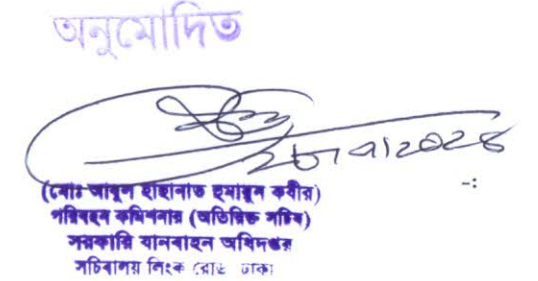 অনুমোদিত
২৮/৭/২০২৪
-:
(মোঃ আবুল হাছানাত হুমায়ুন কবীর)
পরিবহন কমিশনার (অতিরিক্ত সচিব)
সরকারি যানবাহন অধিদপ্তর
সচিবালয় লিংক রোড ঢাকা